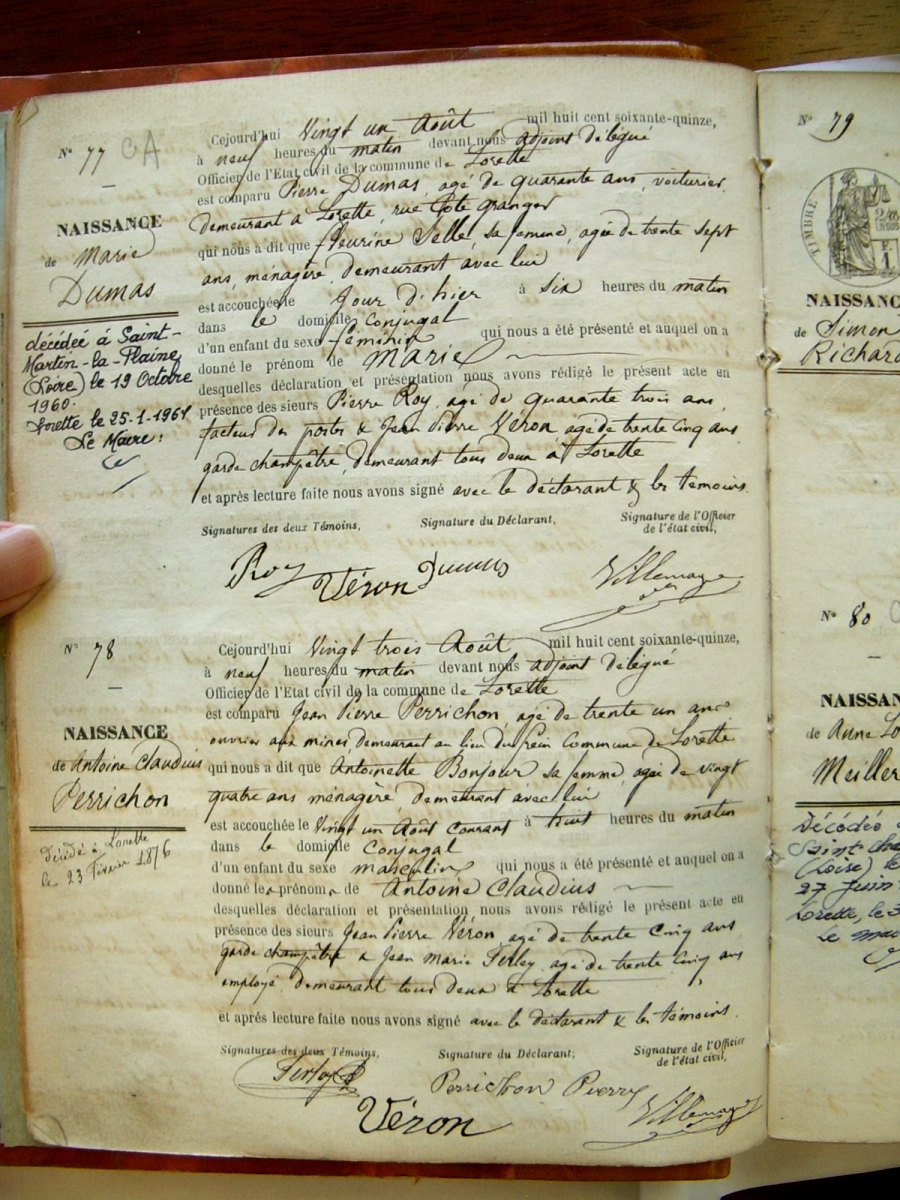 N° 77 CA
NAISSANCE
de Marie
Dumas
décédée à Saint-
Martin-la-Plaine
(Loire) le 19 Octobre
1960.
Lorette le 25-1-1961
Le Maire:
Cejourd'hui Vingt un Août mil huit cent soixante-quinze,
à neuf heures du matin devant nous adjoint délégué
Officier de l'Etat civil de la commune de Lorette
est comparu Pierre Dumas, agé de quarante ans, voiturier,
demeurant à Lorette, rue Côte granger
qui nous a dit que fleurine Selle, sa femme, agée de trente sept
ans, ménagère, demeurant avec lui
est accouchée le Jour d'hier à six heures du matin
dans le domicile Conjugal
d'un enfant du sexe féminin qui nous a été présenté et auquel on a
donné le prénom de Marie
desquelles déclaration et présentation nous avons rédigé le présent acte en
présence des sieurs Pierre Roy, agé de quarante trois ans,
facteur des postes & Jean Pierre Véron agé de trente Cinq ans
garde champêtre, demeurant tous deux à Lorette
et après lecture faite nous avons signé avec le déclarant & les témoins.
Signatures des deux Témoins, Signature du Déclarant, Signature de l'Officier
de l'état civil,
Roy Véron Dumas Villemagne
N° 78
NAISSANCE
de Antoine Claudius
Perrichon
Décédé à Lorette
le 23 Février 1876
Cejourd'hui Vingt trois Août mil huit cent soixante-quinze,
à neuf heures du matin devant nous adjoint délégué
Officier de l'Etat civil de la commune de Lorette
est comparu Jean Pierre Perrichon, agé de trente un ans
ouvrier aux mines, demeurant au lieu du Commune de Lorette
qui nous a dit que Antoinette Bonjour sa femme, agée de vingt
quatre ans ménagère, demeurant avec lui
est accouchée le Vingt un Août Courant à huit heures du matin
dans le domicile Conjugal
d'un enfant du sexe masculin qui nous a été présenté et auquel on a
donné les prénoms de Antoine Claudius
desquelles déclaration et présentation nous avons rédigé le présent acte en
présence des sieurs Jean Pierre Véron agé de trente Cinq ans
garde champêtre & Jean Marie Ferley agé de trente Cinq ans
employé, demeurant tous deux à Lorette
et après lecture faite nous avons signé avec le déclarant & les témoins.
Signatures des deux Témoins, Signature du Déclarant; Signature de l'Officier
de l'état civil,
Ferley Perrichon Pierre Villemagne
Véron
N° 79
TIMBRE
NAISSANC
de Simon
Richard
N° 80
NAISSAN
de Anne Lo
Meiller
Décédée
Saint Cha
(Loire) le
27 juin
Lorette, le 3
Le mai